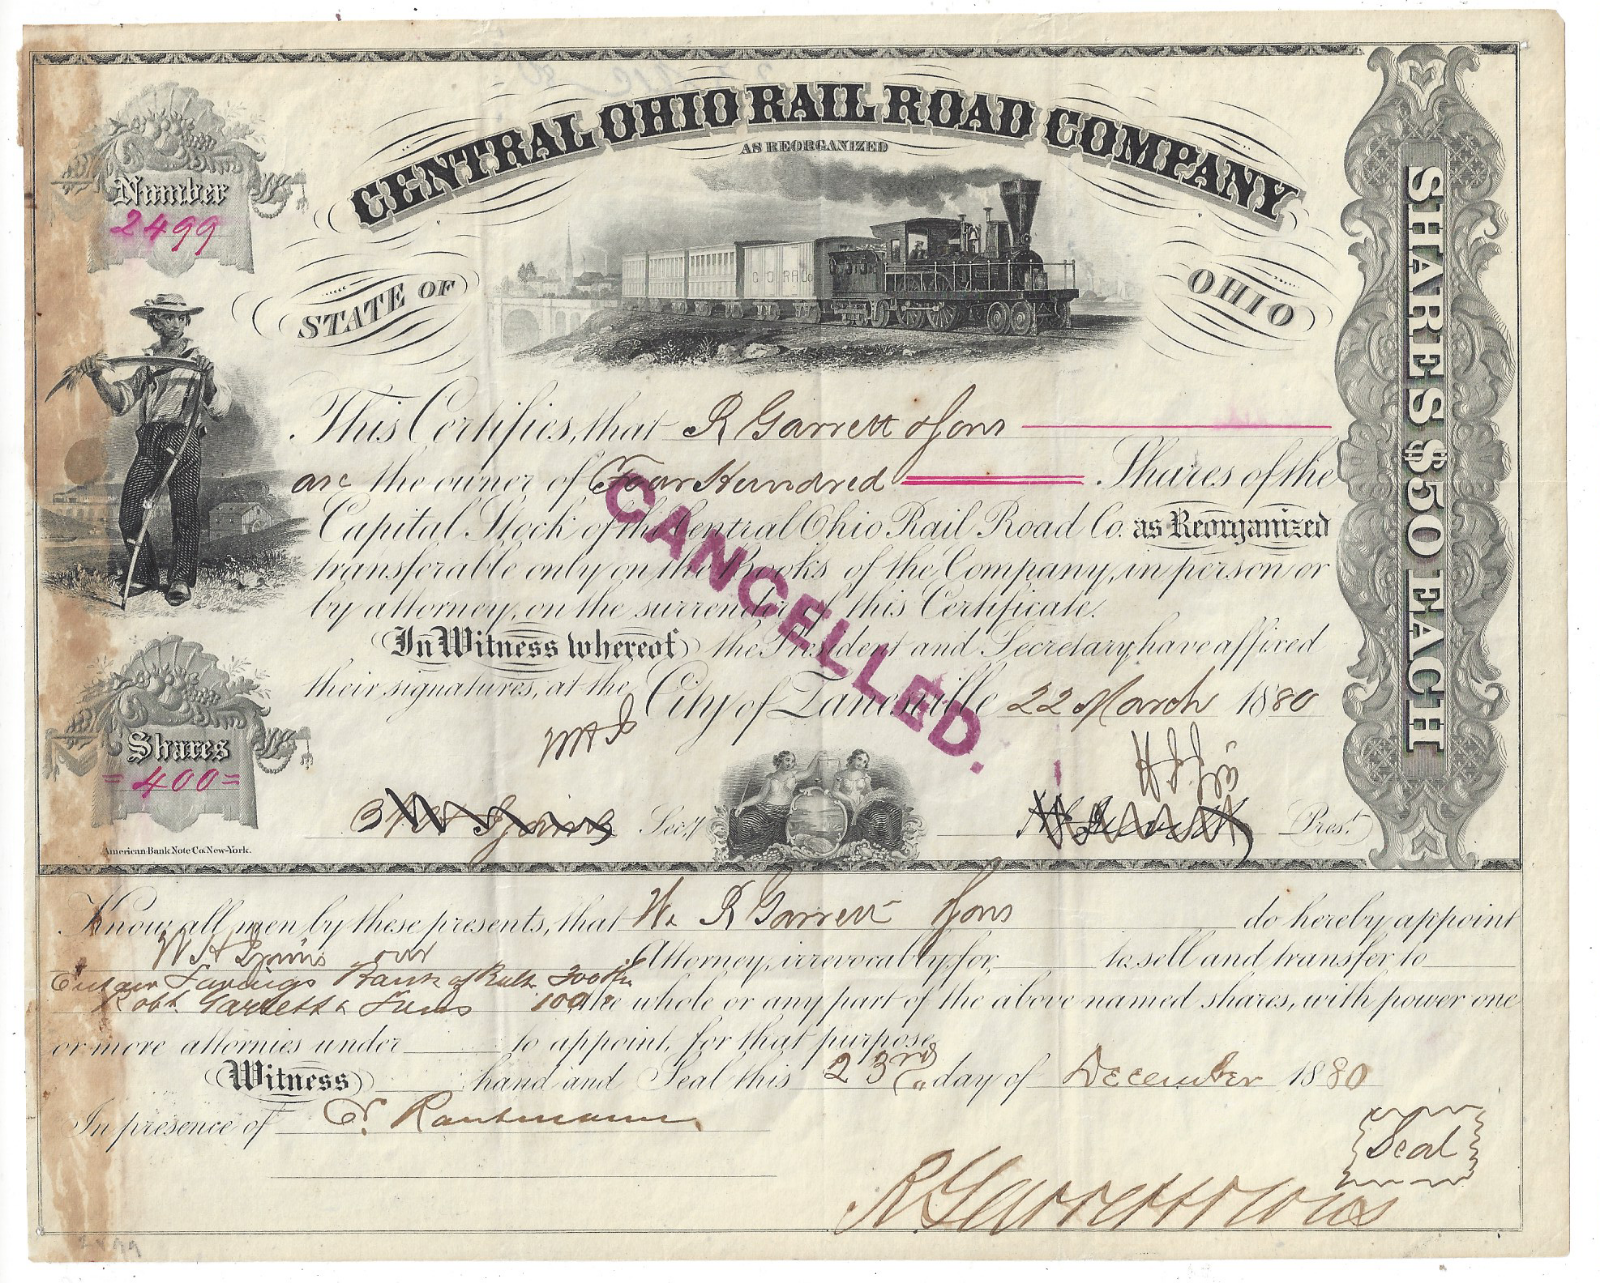 CENTRAL OHIO RAIL ROAD COMPANY
AS REORGANIZED
Number
2499
STATE OF
OHIO
C.O.R.R.Co.
SHARES $50 EACH
This Certifies, that R Garrett & Sons
are the owner of Four Hundred Shares of the
Capital Stock of the Central Ohio Rail Road Co. as Reorganized
transferable only on the Books of the Company, in person or
by attorney, on the surrender of this Certificate.
CANCELLED.
In Witness whereof the President and Secretary, have affixed
their signatures, at the City of Zanesville 22 March 1880
Shares
=400=
Secy
Prest.
American Bank Note Co. New-York.
Know all men by these presents, that We R Garrett & Sons do hereby appoint
W H Attorney, irrevocably for, to sell and transfer to
Savings Bank of Balt. 300
Robt. Garrett & Sons 100 the whole or any part of the above named shares, with power one
or more attornies under to appoint, for that purpose
Witness hand and Seal this 23rd day of December 1880
In presence of
Seal
R Garrett & Sons
2499